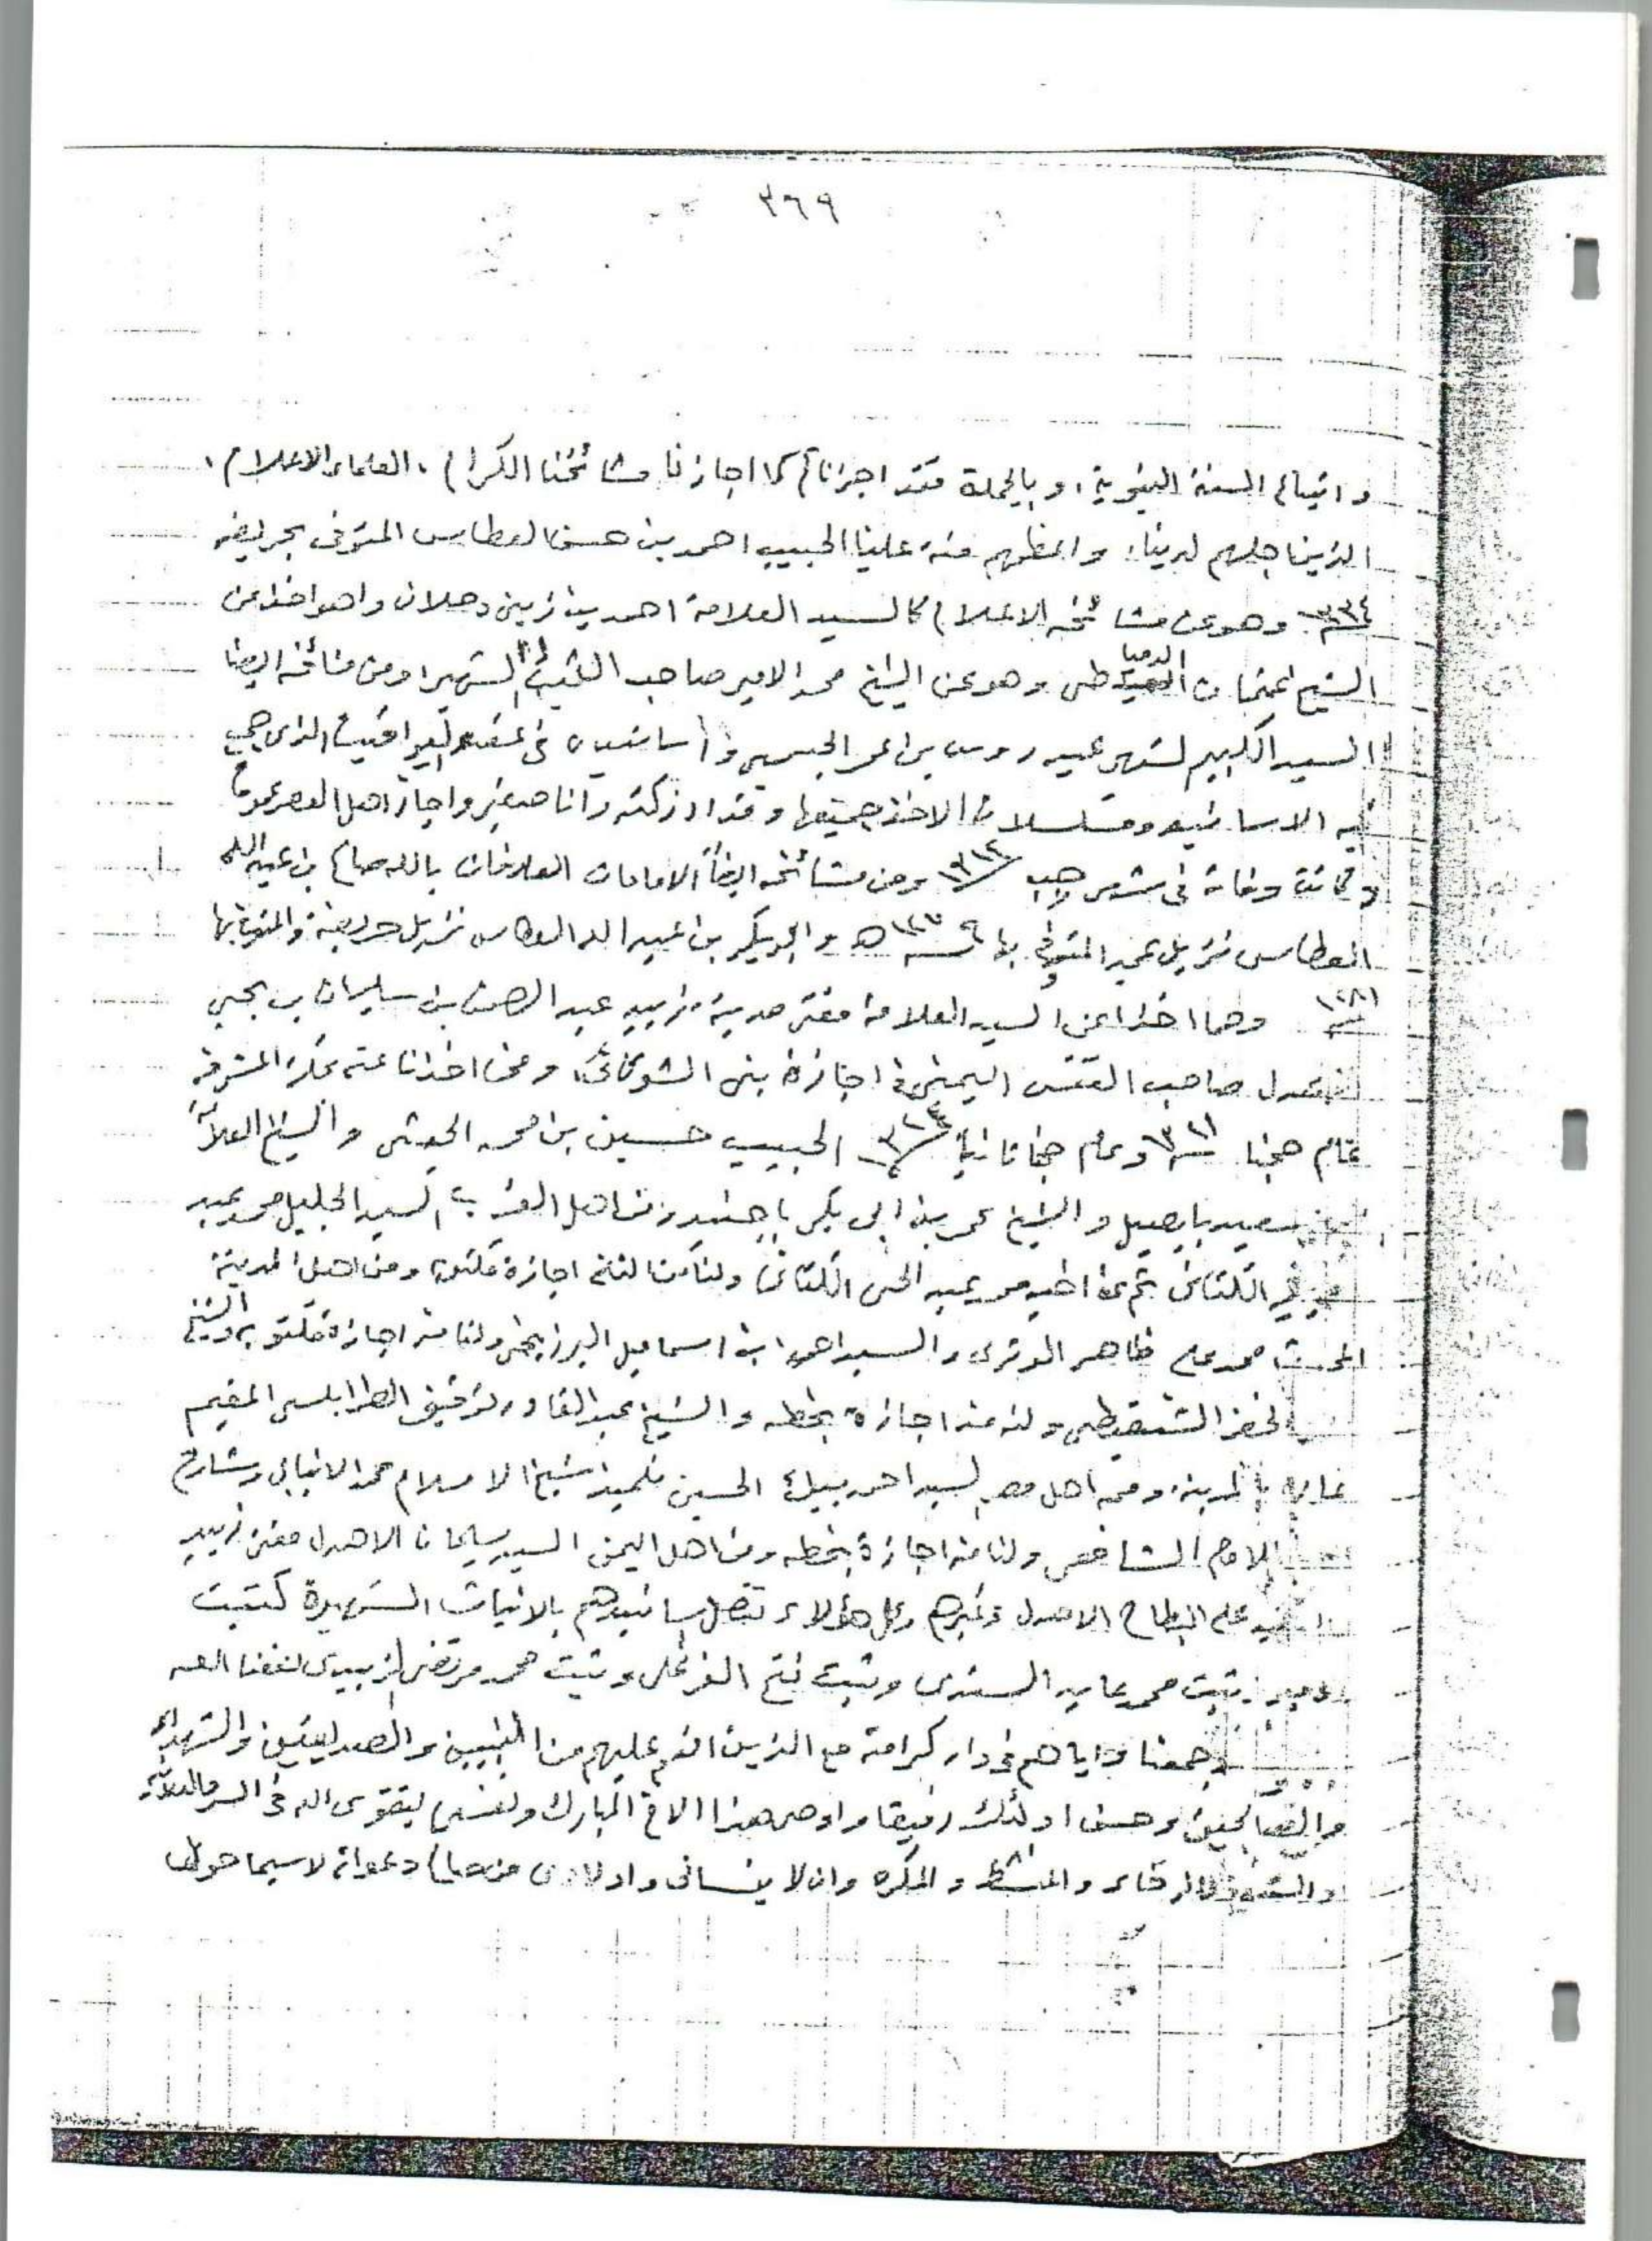 ٣٦٩
واتباع السنة النبوية، وبالجملة فقد اجزناكم كما اجازنا مشائخنا الكرام، العلماء الاعلام،
الذين اجلهم لدينا، واعظمهم منة علينا الحبيب احمد بن حسن العطاس المتوفى بحريضه
١٣٣٤ وهو عن مشائخه الاعلام كالسيد العلامة احمد بن زيني دحلان واهو اخذ عن
الشيخ عثمان الدمياطي وهو عن الشيخ محمد الامير صاحب الثبت الشهير ومن مشائخه ايضا
السيد الكبير الشهير عيدروس بن عمر الحبشي واسانيده في عقد اليواقيت الذي جمع
فيه الاسانيد ومسلسلات الاخذ جميعها وقد ادركته وانا صغير واجاز اهل العصر عموماً
وكانت وفاته في شهر رجب ١٣١٤ ومن مشائخه ايضاً الامامان العارفان بالله صالح بن عبد الله
العطاس نزيل عمد المتوفى بها ١٢٧٩هـ وابوبكر بن عبد الله العطاس نزيل حريضة والمتوفى بها
١٢٨١ وهما اخذا عن السيد العلامة مفتي مدينة زبيد عبد الرحمن بن سليمان بن يحيى
الاهدل صاحب النفس اليمني في اجازة بني الشوكاني، وممن اخذنا عنه بمكة المشرفة
عام حجنا ١٣٢١ وعام حجنا ثانياً ١٣٢٤ الحبيب حسين بن محمد الحبشي والشيخ العلامة
سعيد بابصيل والشيخ عمر بن ابي بكر باجنيد ومن اهل المغرب السيد الجليل محمد عبد
الكتاني ثم عن اخيه محمد عبد الحي الكتاني ولنا من اجازة مكتوبة ومن اهل المدينة
المحدث محمد علي ظاهر الوتري والسيد احمد ابن اسماعيل البرزنجي ولنا منه اجازة مكتوبه والشيخ
الخضر الشنقيطي ولنا منه اجازة بخطه والشيخ عبد القادر توفيق الطرابلسي المقيم
بالمدينة، ومن اهل مصر السيد احمد بيك الحسيني تلميذ شيخ الاسلام محمد الانبابي وشارح
الامام الشافعي ولنا منه اجازة بخطه ومن اهل اليمن السيد سليمان الاهدل مفتي زبيد
علي البطاح الاهدل وغيرهم وكل هؤلاء تتصل اسانيدهم بالاثبات الشهيرة كثبت
وثبت محمد عابد السندي وثبت محمد مرتضى الزبيدي نفعنا الله
وجمعنا واياهم في دار كرامته مع الذين انعم عليهم من النبيين والصديقين والشهداء
والصالحين وحسن اولئك رفيقا واوصي هذا الاخ المبارك ونفسي بتقوى الله في السر والعلانية
والشدة والرخاء والمنشط والمكره وان لا ينساني واولادي من صالح دعواته لاسيما حول